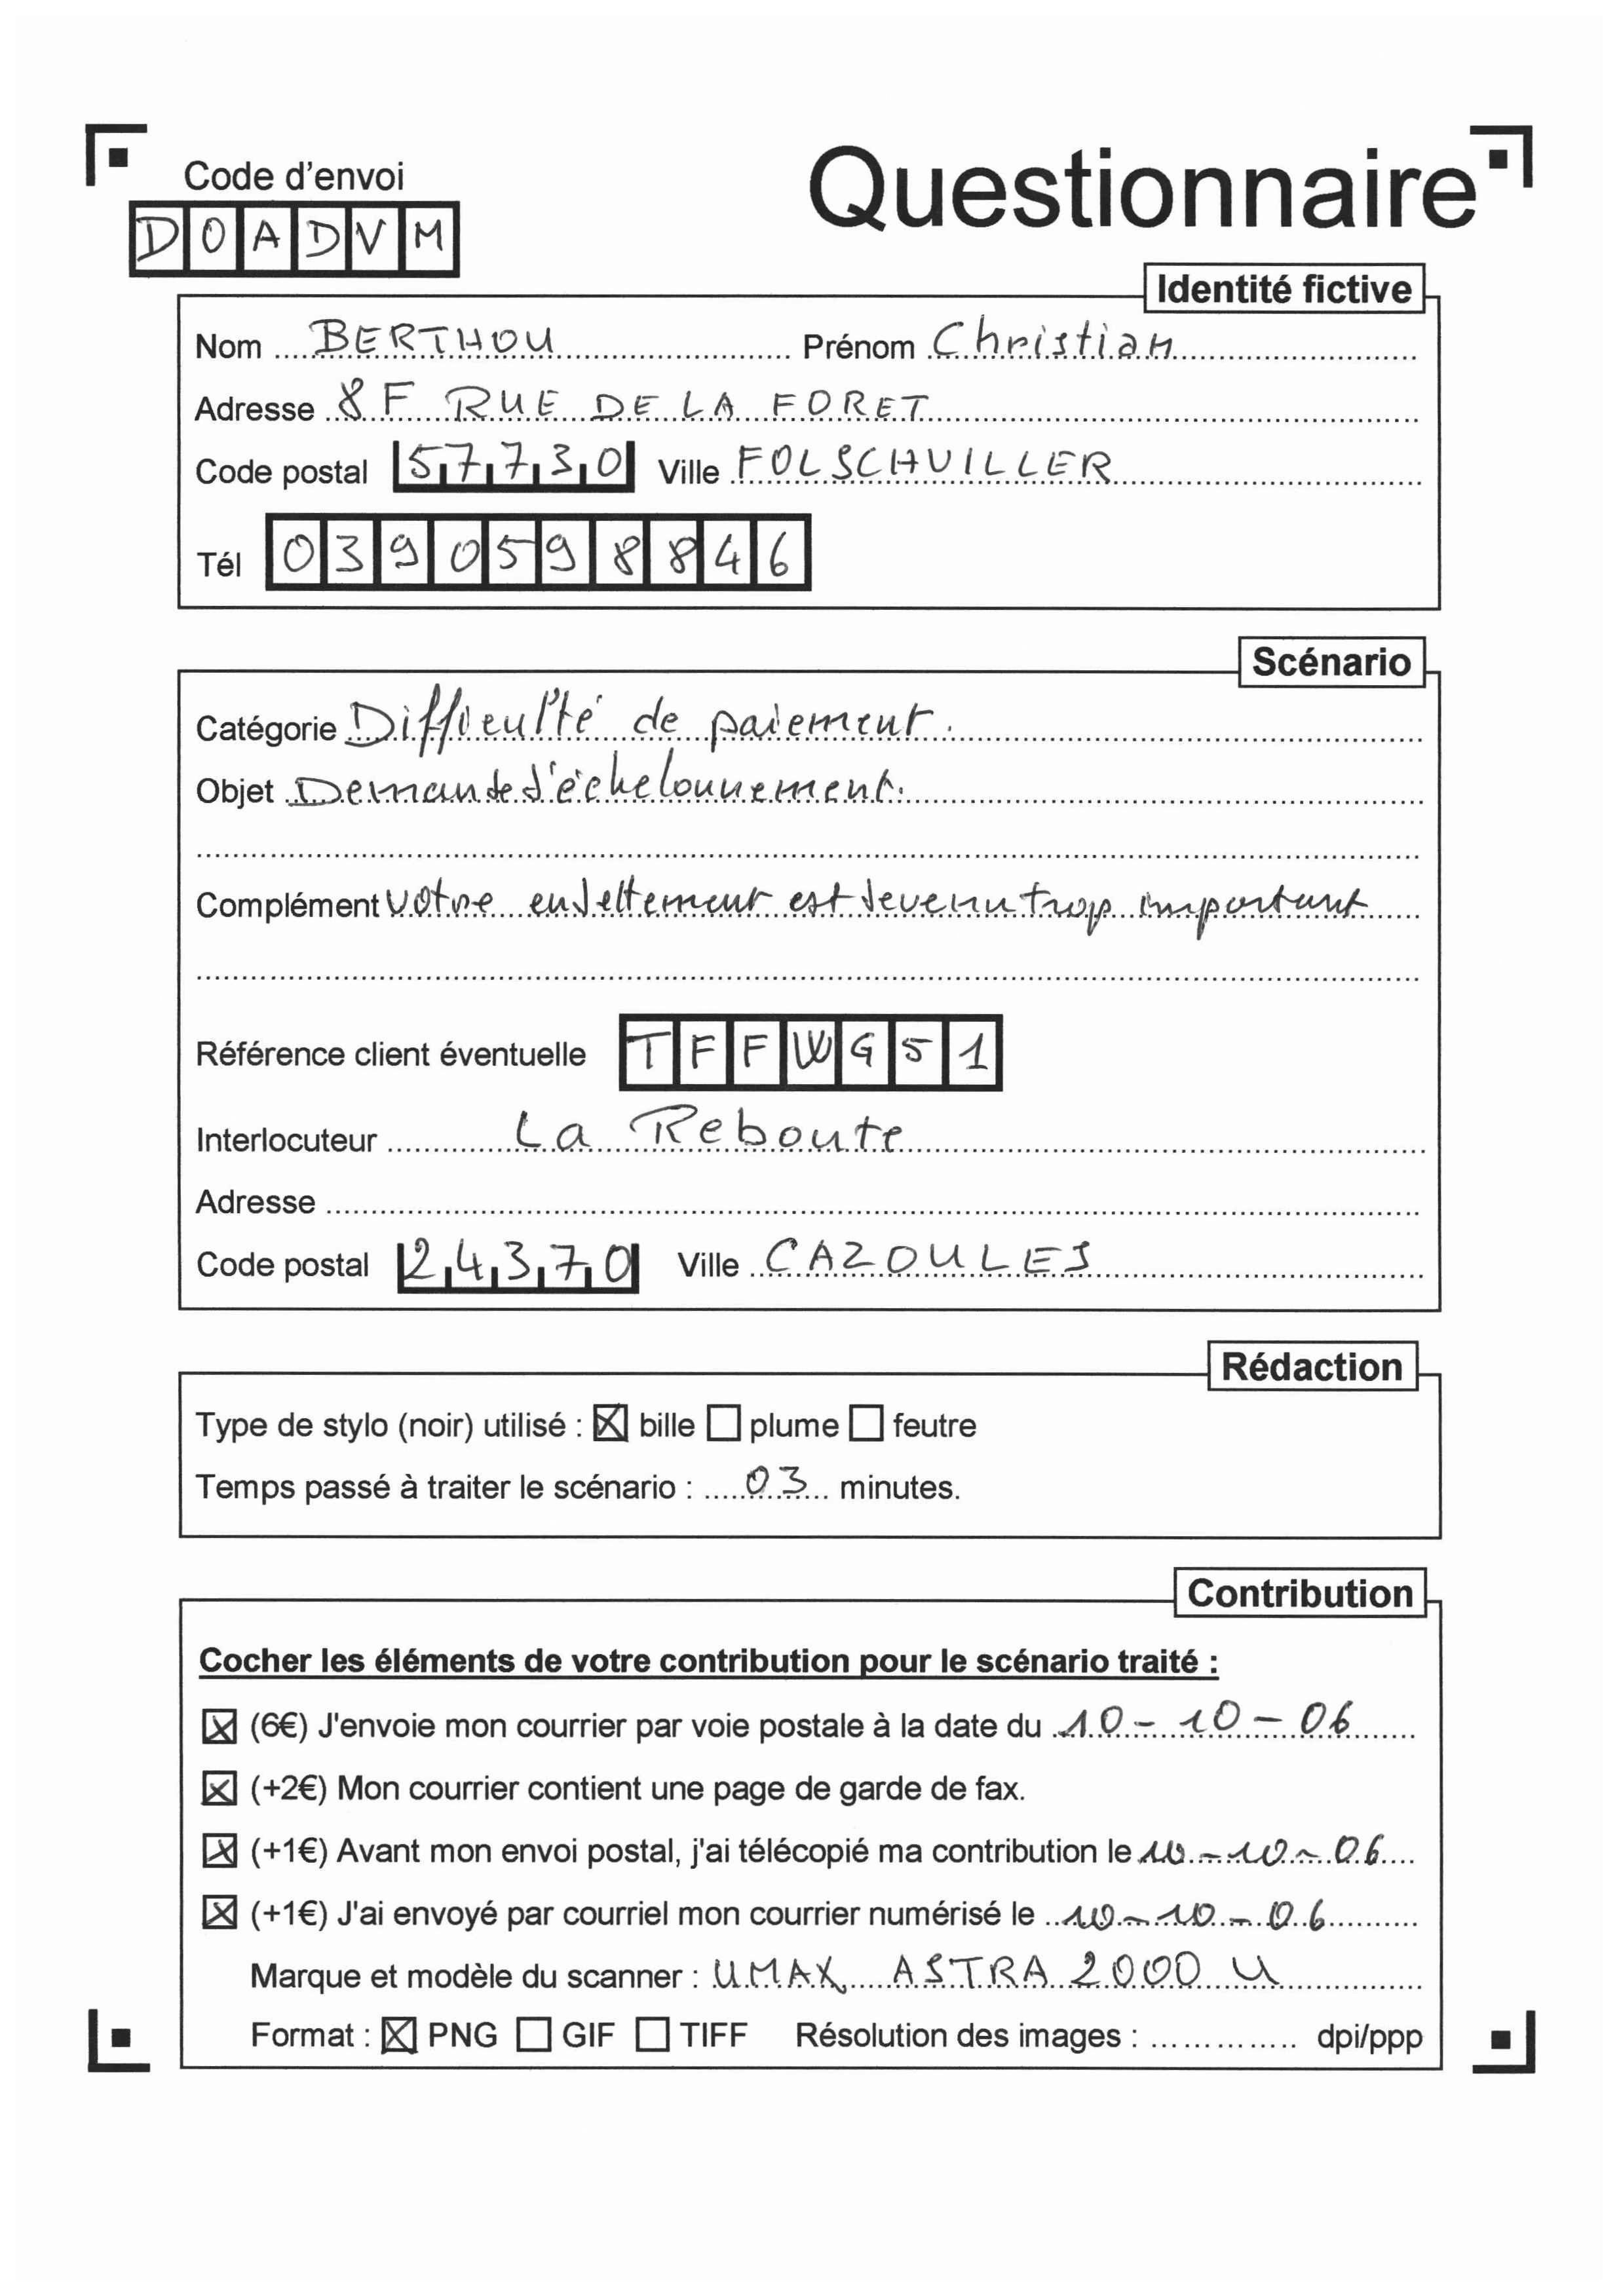 Code d'envoi
Questionnaire
DOADVM
Identité fictive
Nom BERTHOU Prénom Christian
Adresse 8 F RUE DE LA FORET
Code postal 57730 Ville FOLSCHVILLER
Tél 0390598846
Scénario
Catégorie Difficulté de paiement.
Objet Demande d'échelonnement.
Complément votre endettement est devenu trop important
Référence client éventuelle TFFWG51
Interlocuteur La Reboute
Adresse
Code postal 24370 Ville CAZOULES
Rédaction
Type de stylo (noir) utilisé : ☒ bille ☐ plume ☐ feutre
Temps passé à traiter le scénario : 03 minutes.
Contribution
Cocher les éléments de votre contribution pour le scénario traité :
☒ (6€) J'envoie mon courrier par voie postale à la date du 10-10-06
☒ (+2€) Mon courrier contient une page de garde de fax.
☒ (+1€) Avant mon envoi postal, j'ai télécopié ma contribution le 10-10-06
☒ (+1€) J'ai envoyé par courriel mon courrier numérisé le 10-10-06
Marque et modèle du scanner : UMAX ASTRA 2000 U
Format : ☒ PNG ☐ GIF ☐ TIFF Résolution des images : .............. dpi/ppp